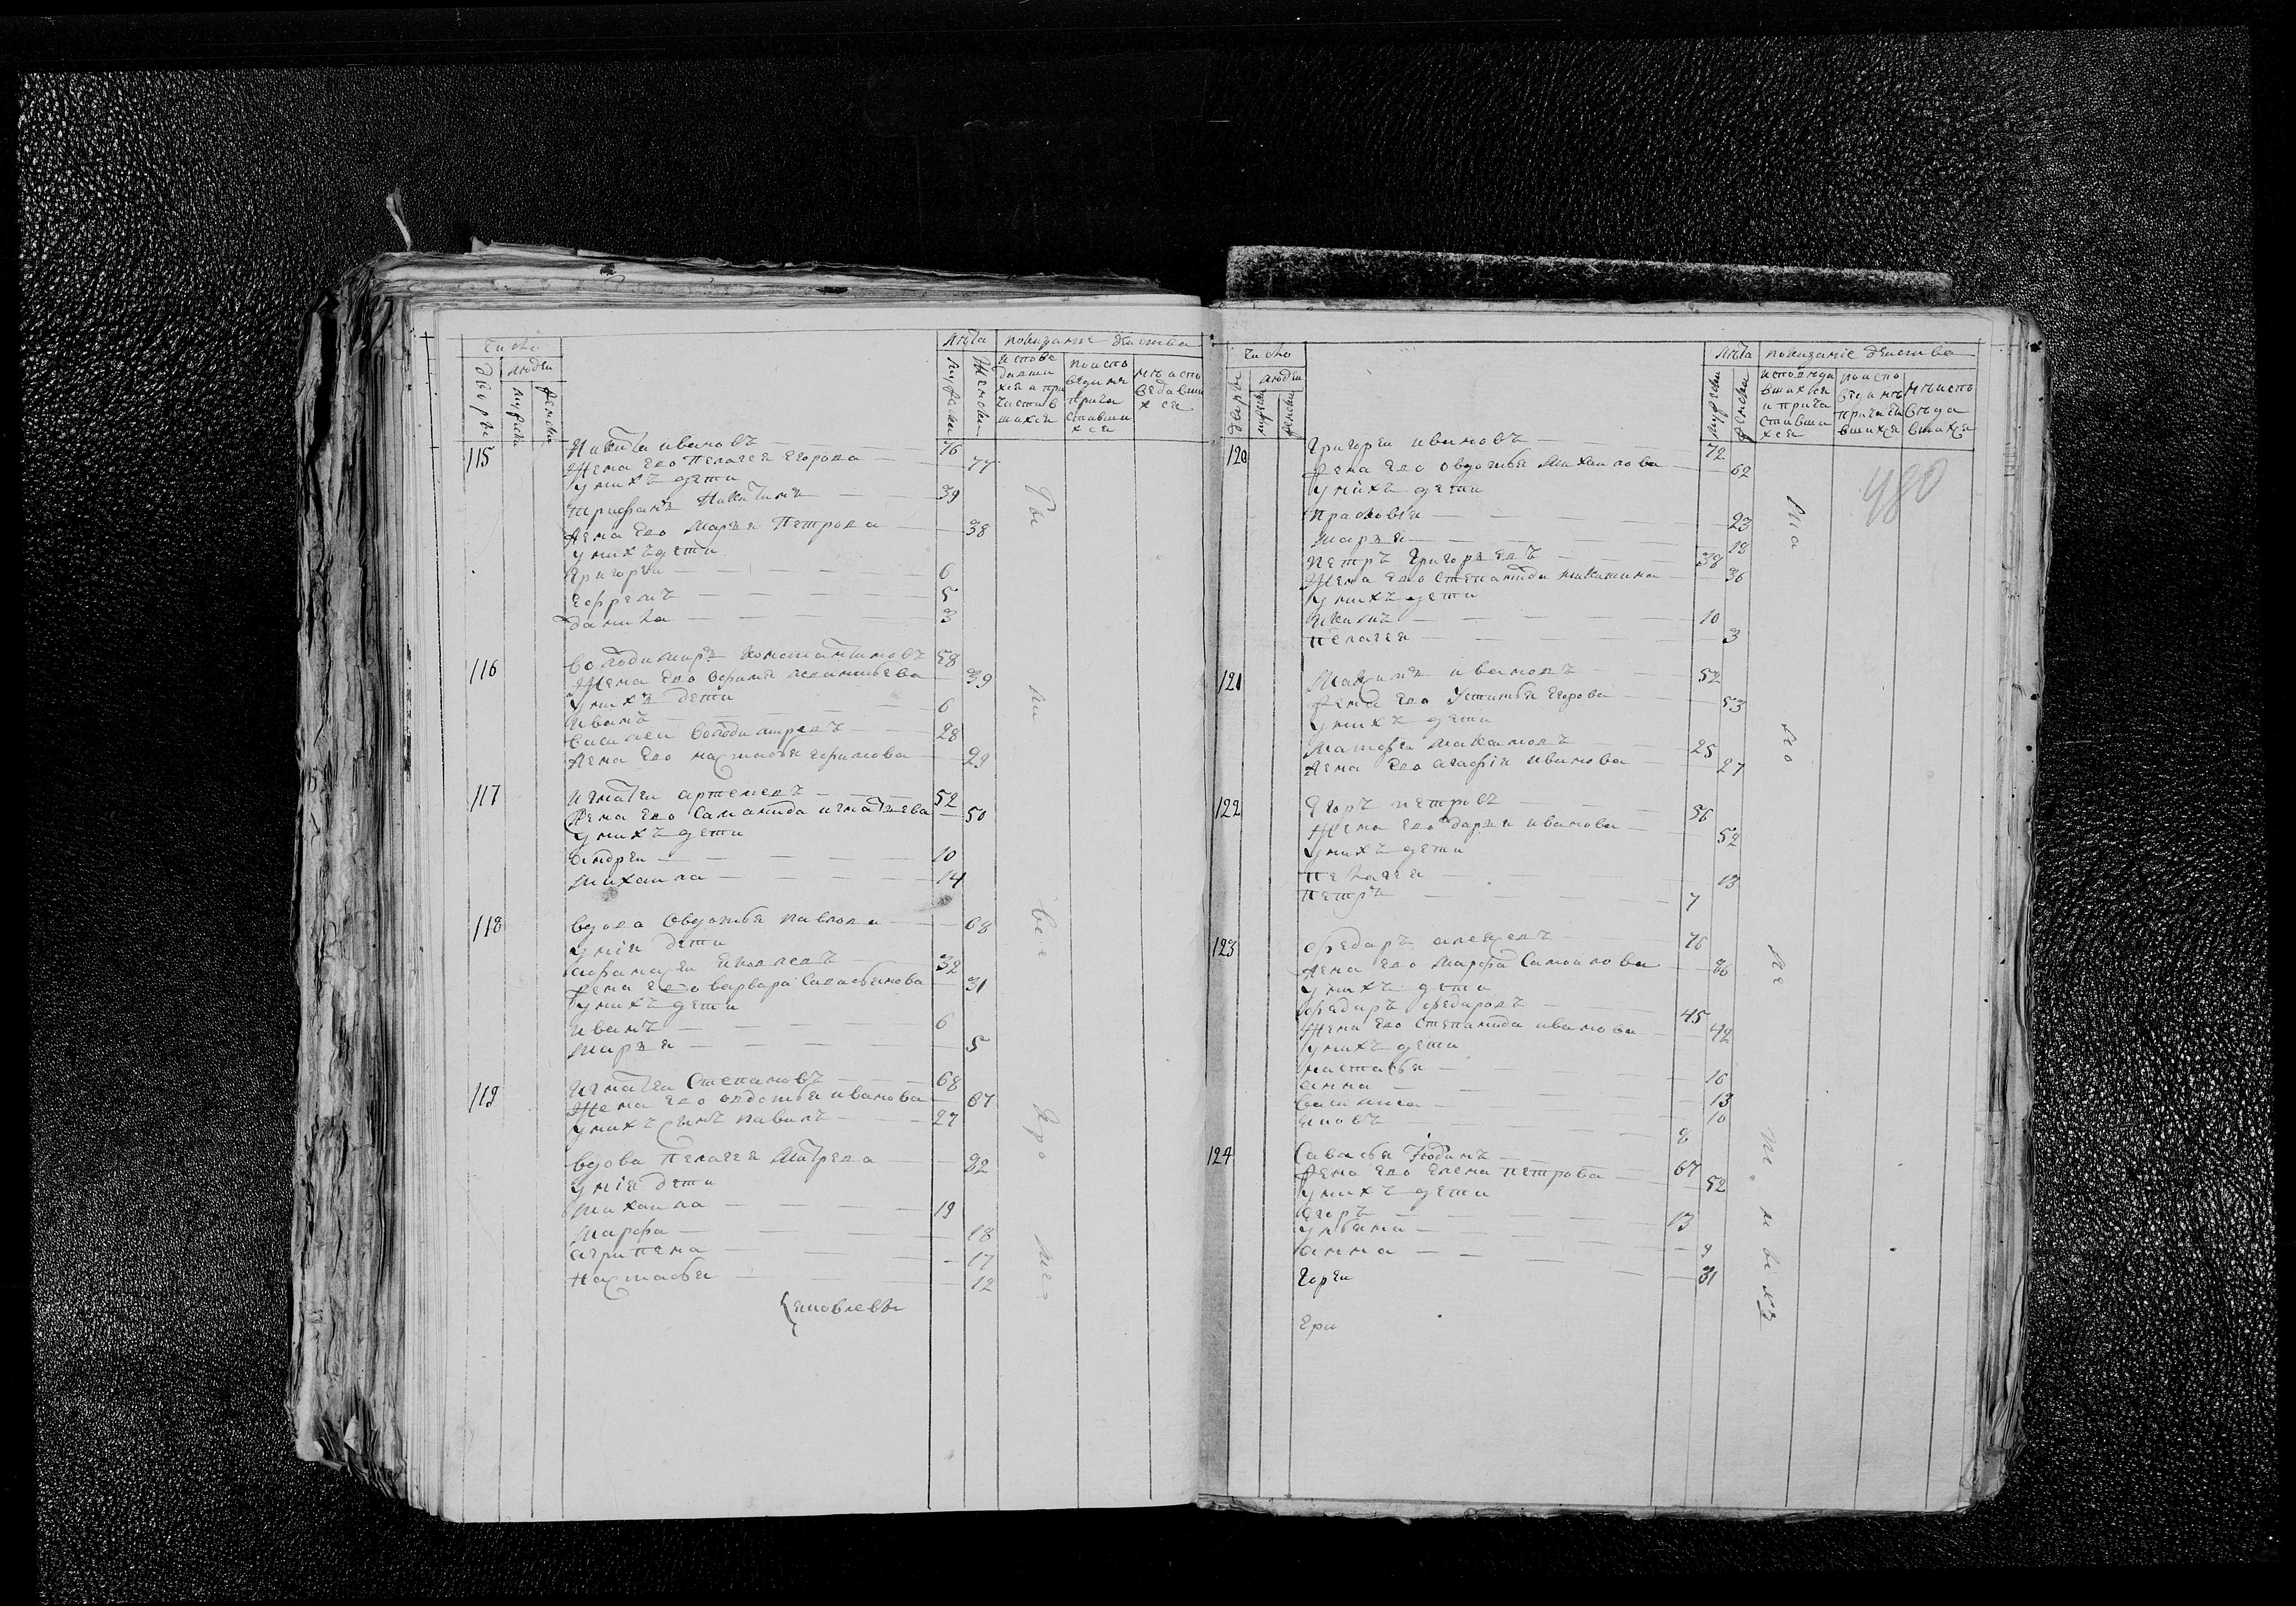 число
лѣта показание действа
дворы
людей
мужеска
женска
мужеска
женски
испове
давши
хся и при
частив
шихся
по испо
веди не
прича
стивши
хся
не испо
ведавши
хся
115
Никита ивановъ 76
Жена его Пелагея Егорова 77
У нихъ дети
трифанъ Никитинъ 39
Жена его Марья Петрова 38
У нихъ дети
Григореи 6
Ефремъ 5
данила 3
116
Володимиръ Константиновъ 58
Жена его 39
У нихъ дети
Иванъ 6
Василеи Володимировъ 28
Жена его настасья ефимова 29
117
Игнатеи артемевъ 52
Жена его Саламанида игнатьева 50
У нихъ дети
андреи 10
Михаила 14
118
Вдова Овдотья павлова 68
У нія дети
афанасеи Яковлевъ 32
Жена его варвара Савастьянова 31
У нихъ дети
Иванъ 6
Марья 5
119
Игнатеи Степановъ 68
Жена его овдотья иванова 67
У нихъ сынъ павилъ 27
Вдова Пелагея 82
У нія дети
Михаила 19
Марфа 18
агрипена 17
Настасья 12
яковлевы
число
лѣта показаніе действа
дворы
людеи
мужеска
женска
мужеска
женски
исповѣда
вшихся
и прича
стивши
хся
по испо
веди нѣ
причасти
вшихся
нѣ испо
вѣда
вшихся
480
120
Григореи ивановъ 72
Жена его овдотья Михаилова 62
У нихъ дети
Прасковья 23
Марья 18
Петръ Григорьевъ 38
Жена его степанида никитина 36
У нихъ дети
Якимъ 10
Пелагея 3
121
Максимъ ивановъ 52
Жена его Устинья Егорова 53
У нихъ дети
Матфеи Максимовъ 25
Жена его агафія иванова 27
122
Егоръ петровъ 56
Жена его дарья иванова 52
У нихъ дети
Пелагея 13
Петръ 7
123
федаръ алексевъ 76
Жена его Марфа Самоилова
У нихъ дети
федаръ федаровъ 45
Жена его степанида иванова 42
У нихъ дети
настасья 16
анна 13
василиса 10
яковъ 8
124
Савасьтя Родинъ 67
Жена его Елена петрова 52
У нихъ дети
Егоръ 13
Ульяна 9
анна 31